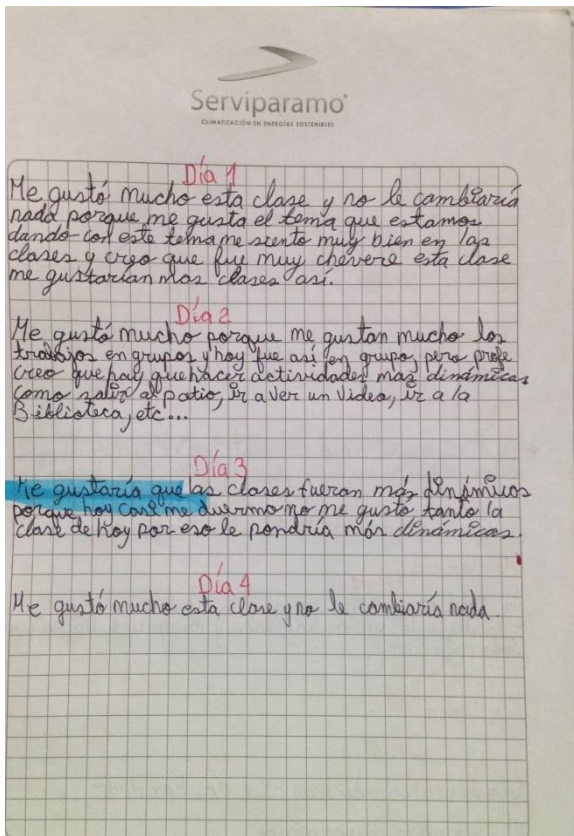 Serviparamo
CLIMATIZACIÓN EN ENERGÍAS SOSTENIBLES
Día 1
Me gustó mucho esta clase y no le cambiaría
nada porque me gusta el tema que estamos
dando con este tema me siento muy bien en las
clases y creo que fue muy chévere esta clase
me gustarían mas clases así.
Día 2
Me gustó mucho porque me gustan mucho los
trabajos en grupos y hoy fue así en grupo, pero profe
creo que hay que hacer actividades mas dinámicas
como salir al patio, ir a ver un video, ir a la
Biblioteca, etc...
Día 3
Me gustaría que las clases fueran más dinámicos
porque hoy casi me duermo no me gusto tanto la
clase de hoy por eso le pondría más dinámicas.
Día 4
Me gustó mucho esta clase y no le cambiaría nada.